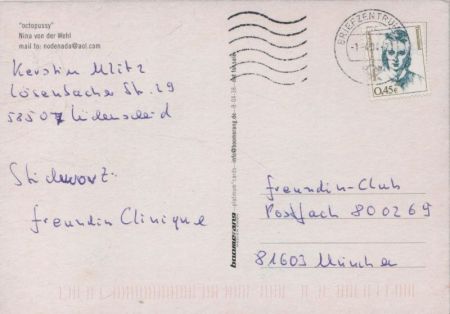 "octopussy"
Nina von der Wehl
mail to: nodenada@aol.com
Kerstin Mlitz
Lösenbacher Str. 29
58507 Lüdenscheid
Stichwort:
freundin Clinique
boomerang
platinum°cards - info@boomerang.de
BRIEFZENTRUM
0,45€
freundin-Club
Postfach 800269
81603 München